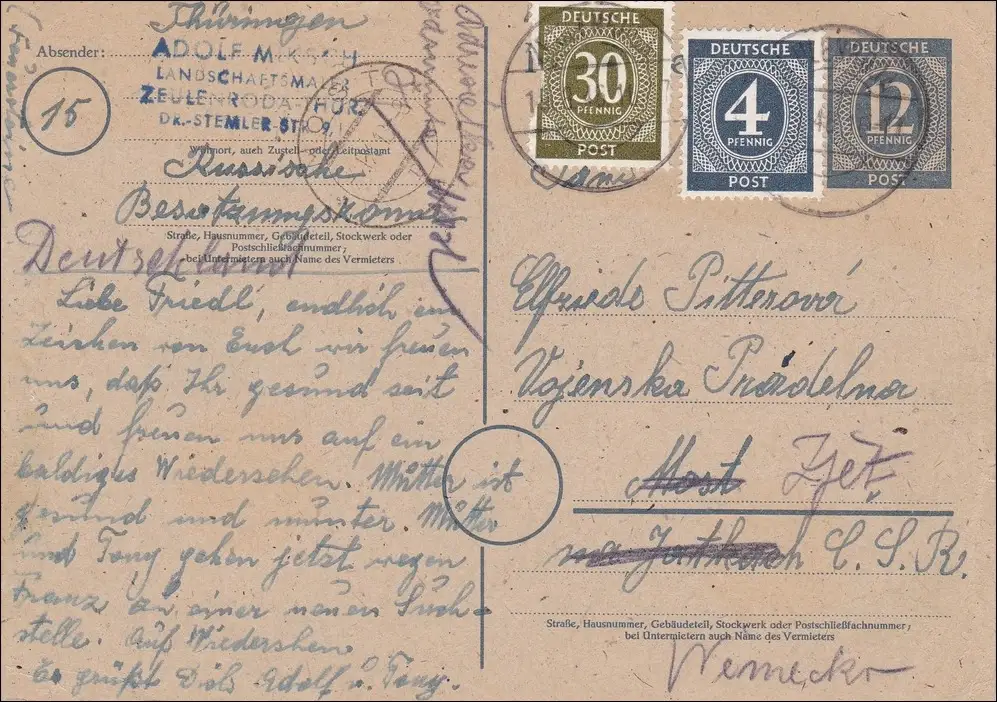 Thüringen
Absender:
ADOLF MIKSCH
LANDSCHAFTSMALER
ZEULENRODA-THÜR.
DR.-STEMLER-STR. 9
15
Wohnort, auch Zustell- oder Leitpostamt
Russische
Besatzungskone
Straße, Hausnummer, Gebäudeteil, Stockwerk oder
Postschließfachnummer;
bei Untermietern auch Name des Vermieters
Deutschland
Liebe Friedl, endlich ein
Zeichen von Euch wir freuen
uns, daß Ihr gesund seit
und freuen uns auf ein
baldiges Wiedersehen. Mutter ist
gesund und munter Mutter
und Tony gehen jetzt wegen
Franz zu einer neuen Such-
stelle. Auf Wiedershen
Es grüßt Dich Adolf u. Tony.
DEUTSCHE
30
PFENNIG
POST
DEUTSCHE
4
PFENNIG
POST
DEUTSCHE
12
PFENNIG
POST
Elfriede Pitterová
Vojenska Prádelna
Most
C. S. R.
Straße, Hausnummer, Gebäudeteil, Stockwerk oder Postschließfachnummer;
bei Untermietern auch Name des Vermieters
Nemecko